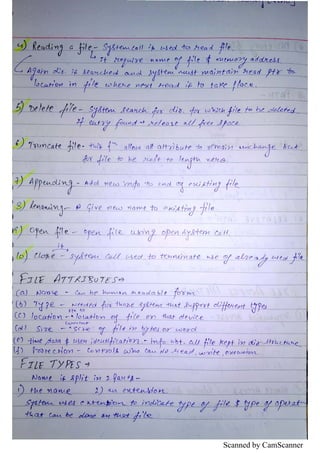 4) Reading a file - System call is used to read file.
It require name of file & memory address
Again dir. is searched and system must maintain read ptr to
location in file where next read is to take place.
5) Delete file - System search for dir. for which file to be deleted
If entry found → release all free space
6) Truncate file - this fⁿ allow all attribute to remain unchange but
for file to be reset to length zero.
7) Appending - Add new info to end of existing file
8) Renaming - Give new name to existing file
9) Open file - open file using open system call.
10) Close - it system call used to terminate use of already used file
FILE ATTRIBUTES →
(a) Name - Can be human readable form
(b) Type - needed for those systems that support different types
(c) location - ptr to location of file on that device
(d) Size - current size of file in bytes or word
(e) time date & user identification - Info abt. all file kept in dir structure
(f) Protection - controls who can do read, write, execution
FILE TYPES →
Name is split in 2 parts -
1) the name 2) an extension
System uses extension to indicate type of file & type of operation
that can be done on that file
Scanned by CamScanner